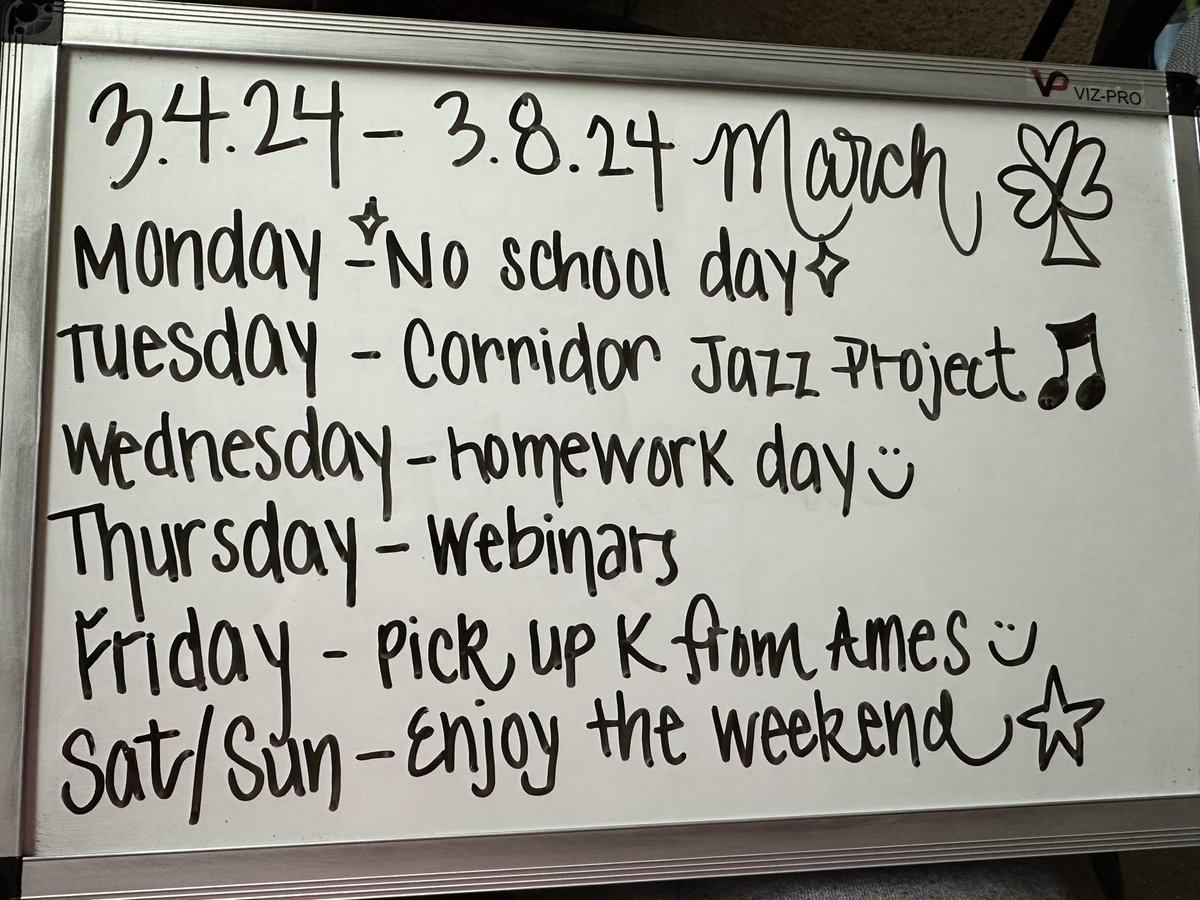 VP VIZ-PRO
3.4.24 - 3.8.24 March
Monday - No school day
Tuesday - Corridor Jazz Project
Wednesday - homework day
Thursday - Webinars
Friday - Pick up K from Ames
Sat/Sun - Enjoy the weekend